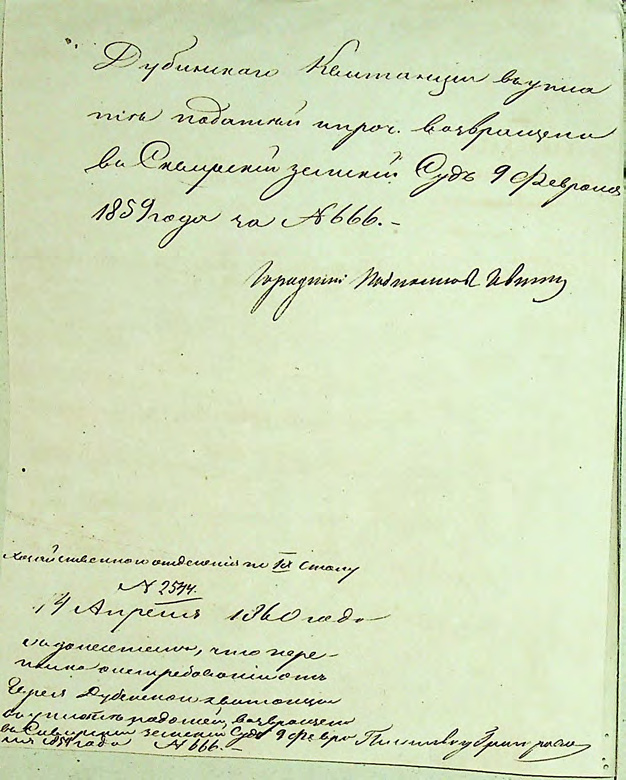 Дубинскаго Квитанціи въ упла
тѣ податей и проч. возвращена
въ Сквирскій земскій Судъ 9 Февраля
1859 года за № 666. –
Городничій Подполковникъ
Хозяйственнаго отделенія по столу
№ 2574.
14 Апреля 1860 года
съ донесеніемъ, что пере-
писка о истребованіи отъ
Еврея Дубинскаго квитанціи
въ уплатѣ податей, возвращена
въ Сквирскій земскій Судъ 9 Февра
ля 1859 года № 666. –